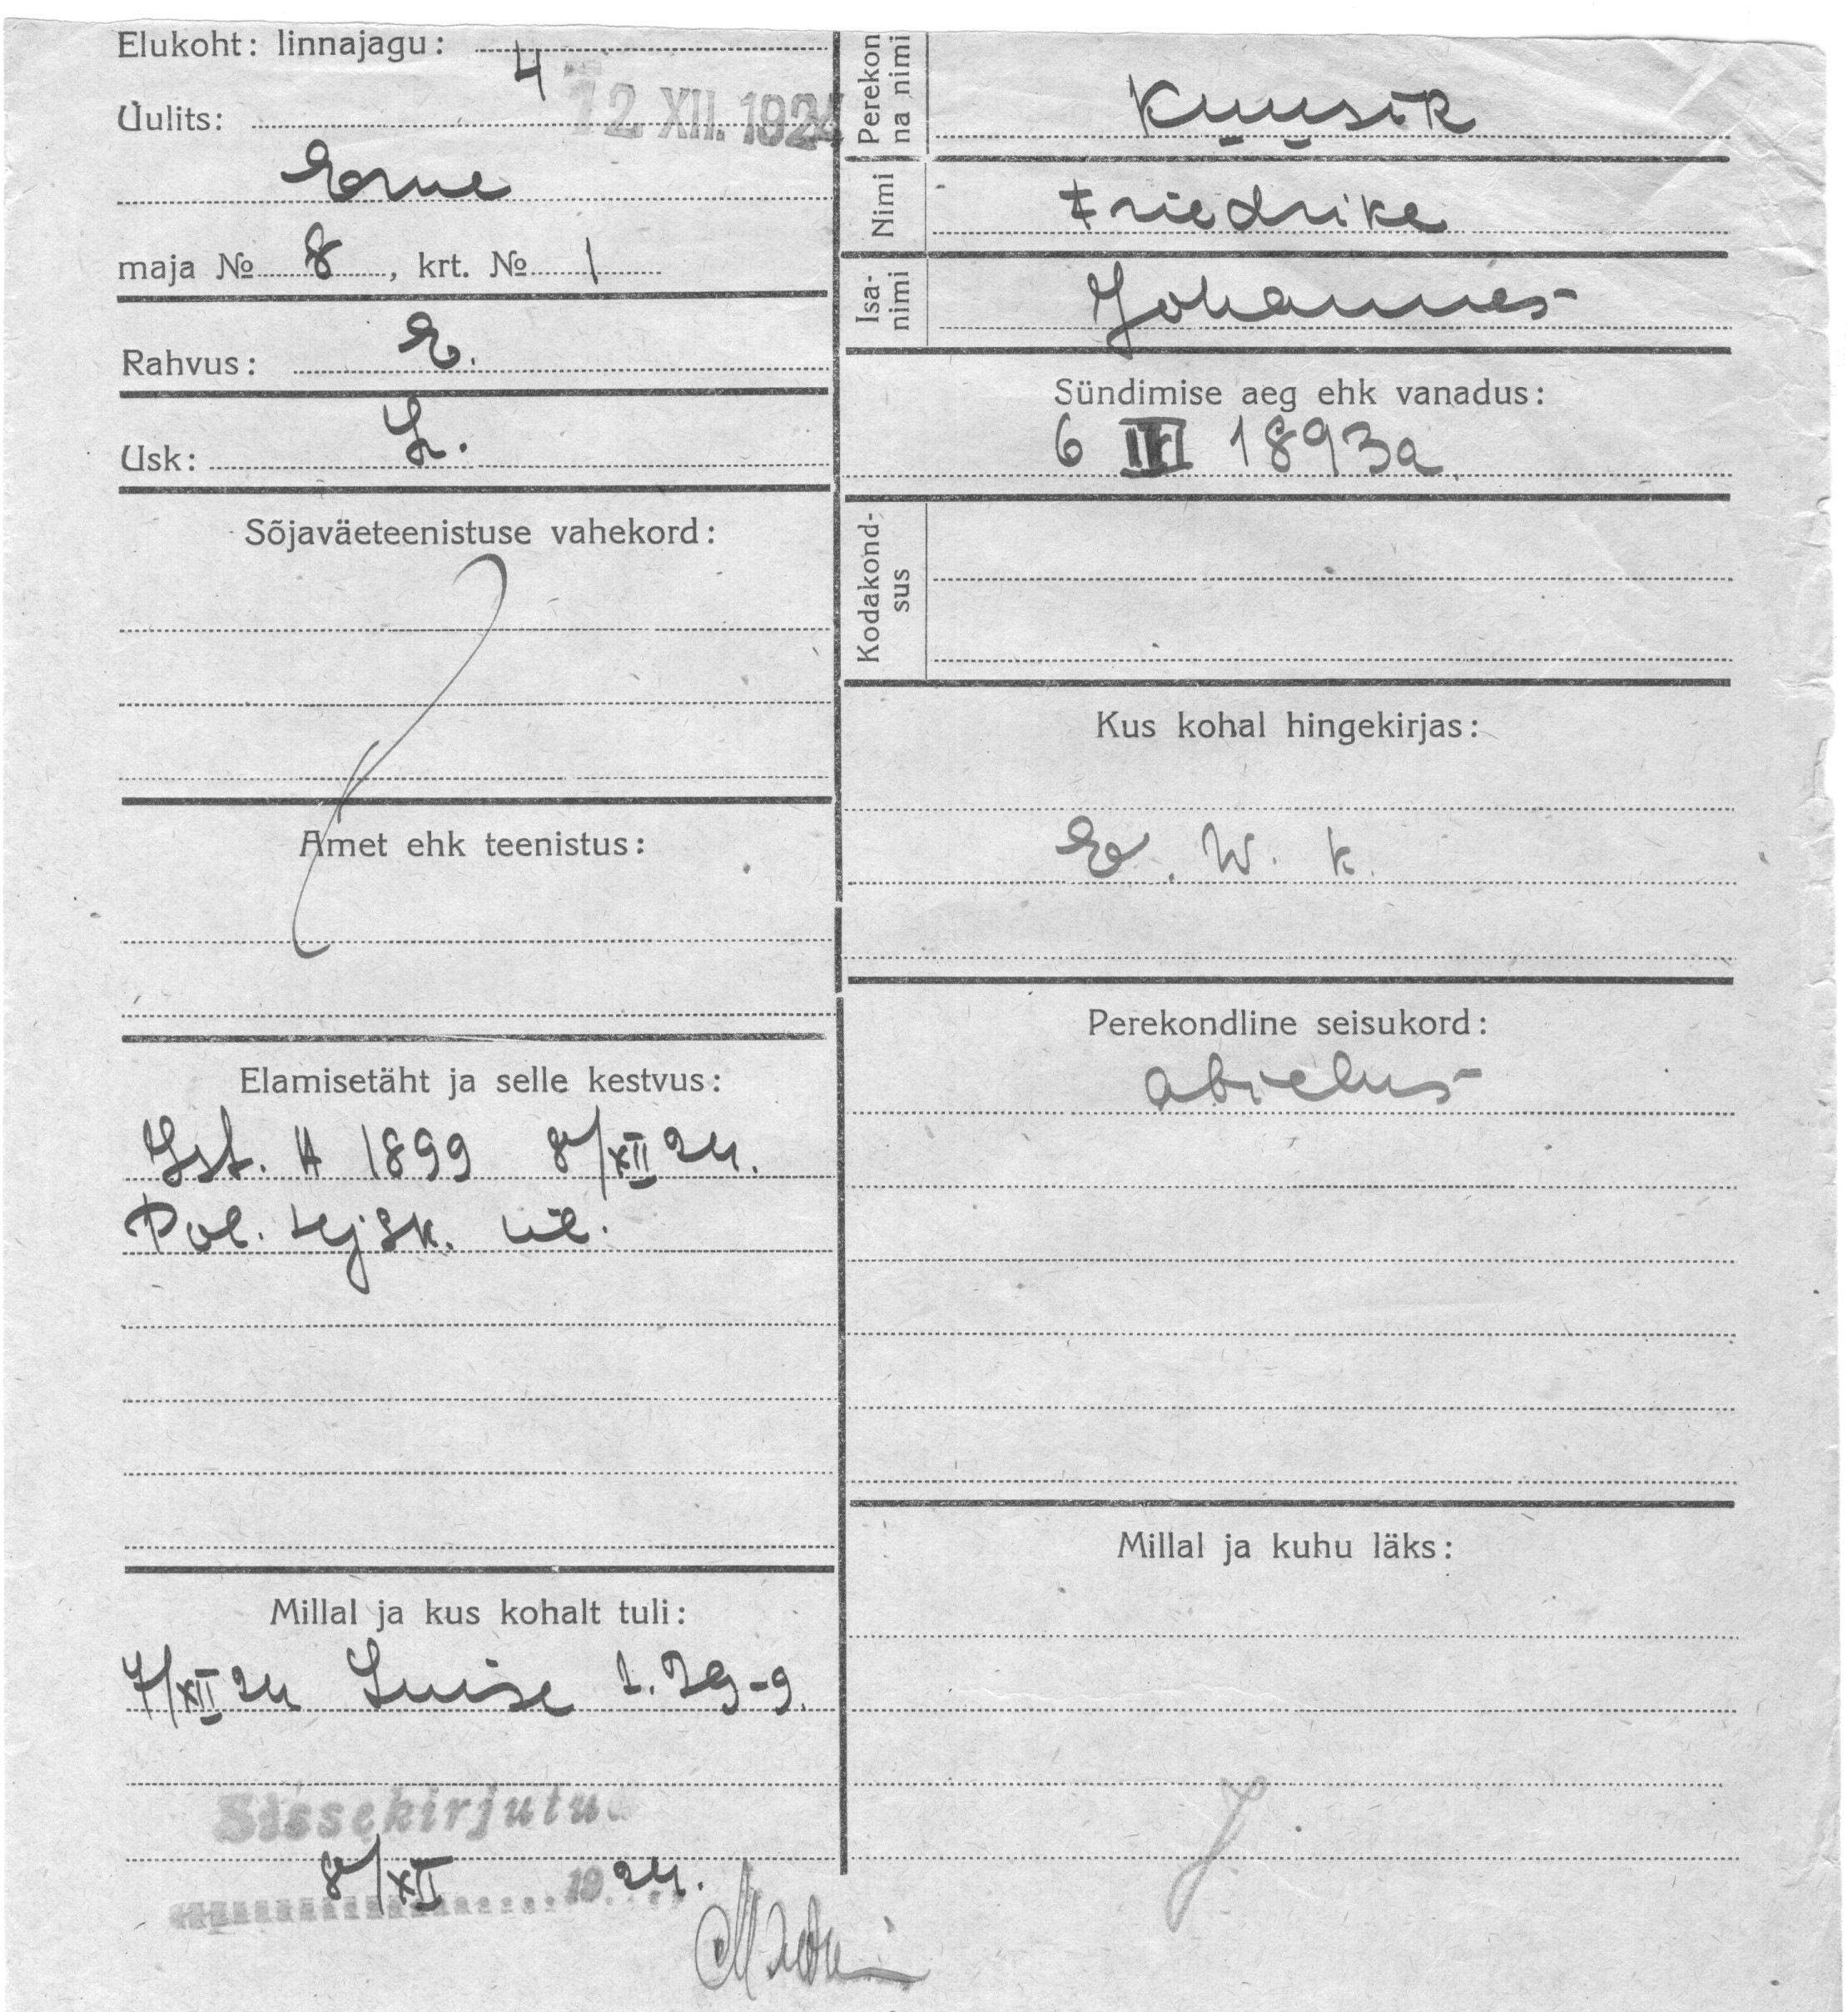 Elukoht: linnajagu: 4
12. XII. 1924
Uulits:
Erne
maja № 8, krt. № 1
Rahvus: E.
Usk: L.
Sõjaväeteenistuse vahekord:
Amet ehk teenistus:
Elamisetäht ja selle kestvus:
Ist. A 1899 8/XII 24.
Pol. 4 jsk.
Millal ja kus kohalt tuli:
7/XII 24 Luise t. 29-9.
Sissekirjutud
8/XII 1924.
Perekonna nimi
Kuusik
Nimi
Friedrike
Isa-nimi
Johannes
Sündimise aeg ehk vanadus:
6 III 1893a
Kodakond-sus
Kus kohal hingekirjas:
E. W. k.
Perekondline seisukord:
abielus
Millal ja kuhu läks: